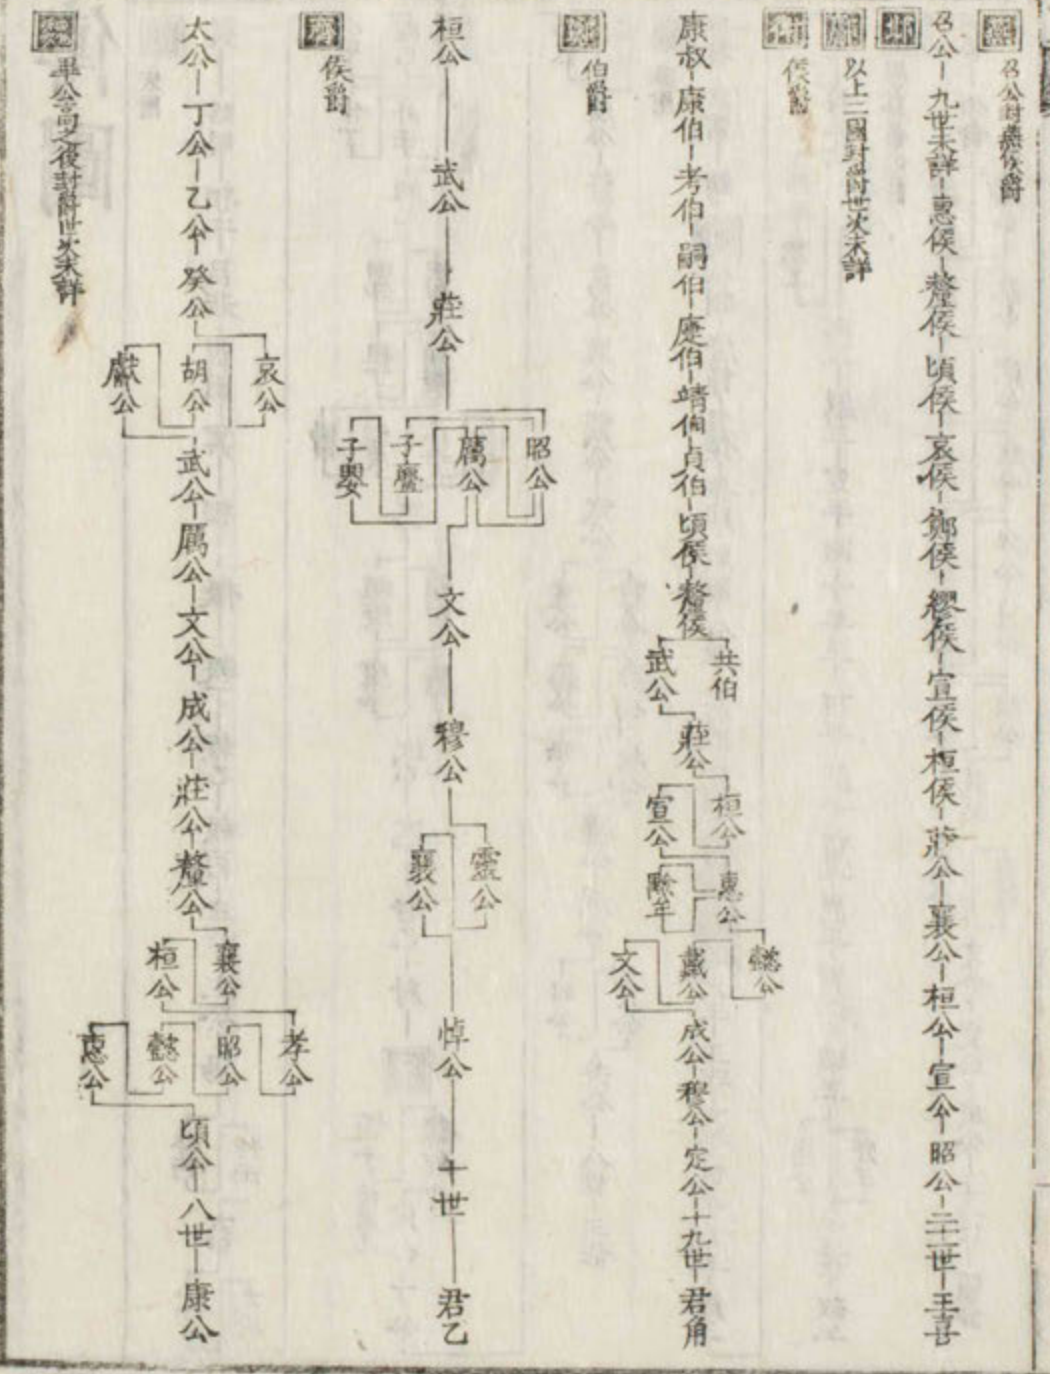 燕
召公封燕侯爵
召公 九世未詳 惠侯 釐侯 頃侯 哀侯 鄭侯 繆侯 宣侯 桓侯 莊公 襄公 桓公 宣公 昭公 二十二世 王喜
邶
鄘
以上三國封爵世次未詳
衛
侯爵
康叔 康伯 考伯 嗣伯 庢伯 靖伯 貞伯 頃侯 釐侯
共伯
武公
莊公
桓公
宣公
惠公
黔牟
懿公
戴公
文公
成公 穆公 定公 十九世 君角
鄭
伯爵
桓公 武公 莊公
昭公
厲公
子亹
子嬰
文公 穆公
靈公
襄公
悼公 十世 君乙
齊
侯爵
太公 丁公 乙公 癸公
哀公
胡公
獻公
武公 厲公 文公 成公 莊公 釐公
襄公
桓公
孝公
昭公
懿公
惠公
頃公 八世 康公
魏
畢公高之後封爵世次未詳